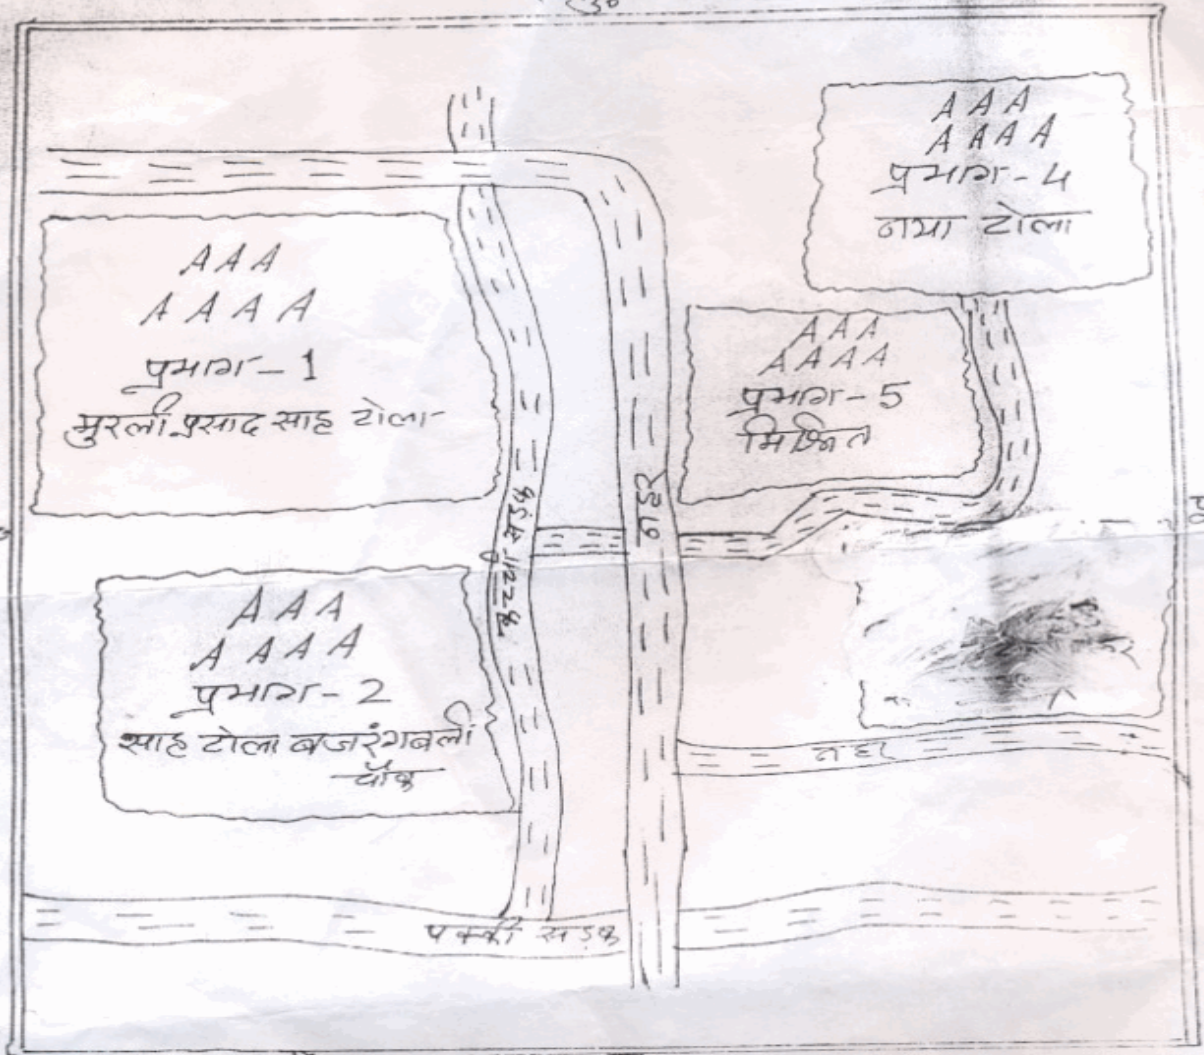 A A A
A A A A
प्रभाग-4
नया टोला
A A A
A A A A
प्रभाग-1
मुरली प्रसाद साह टोला
A A A
A A A A
प्रभाग-5
मिश्रित
कच्ची सड़क
नहर
A A A
A A A A
प्रभाग-2
साह टोला बजरंगबली
चौक
नहर
पक्की सड़क